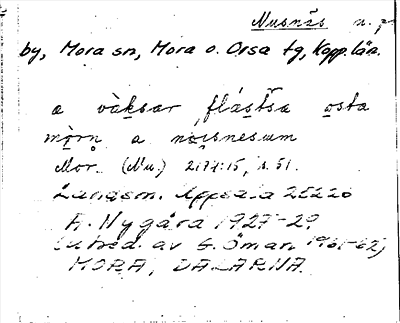 Musnäs n. pr
by, Mora sn, Mora o. Orsa tg, Kopp. län.
a vàksar flástša osta
mòrn a nosnesum
Mor. (Nu.) 2174:15, s. 51.
Landsm. Uppsala 25220
A. Nygårds 1927-29
(utred. av G. Öman 1961-62)
MORA, DALARNA.